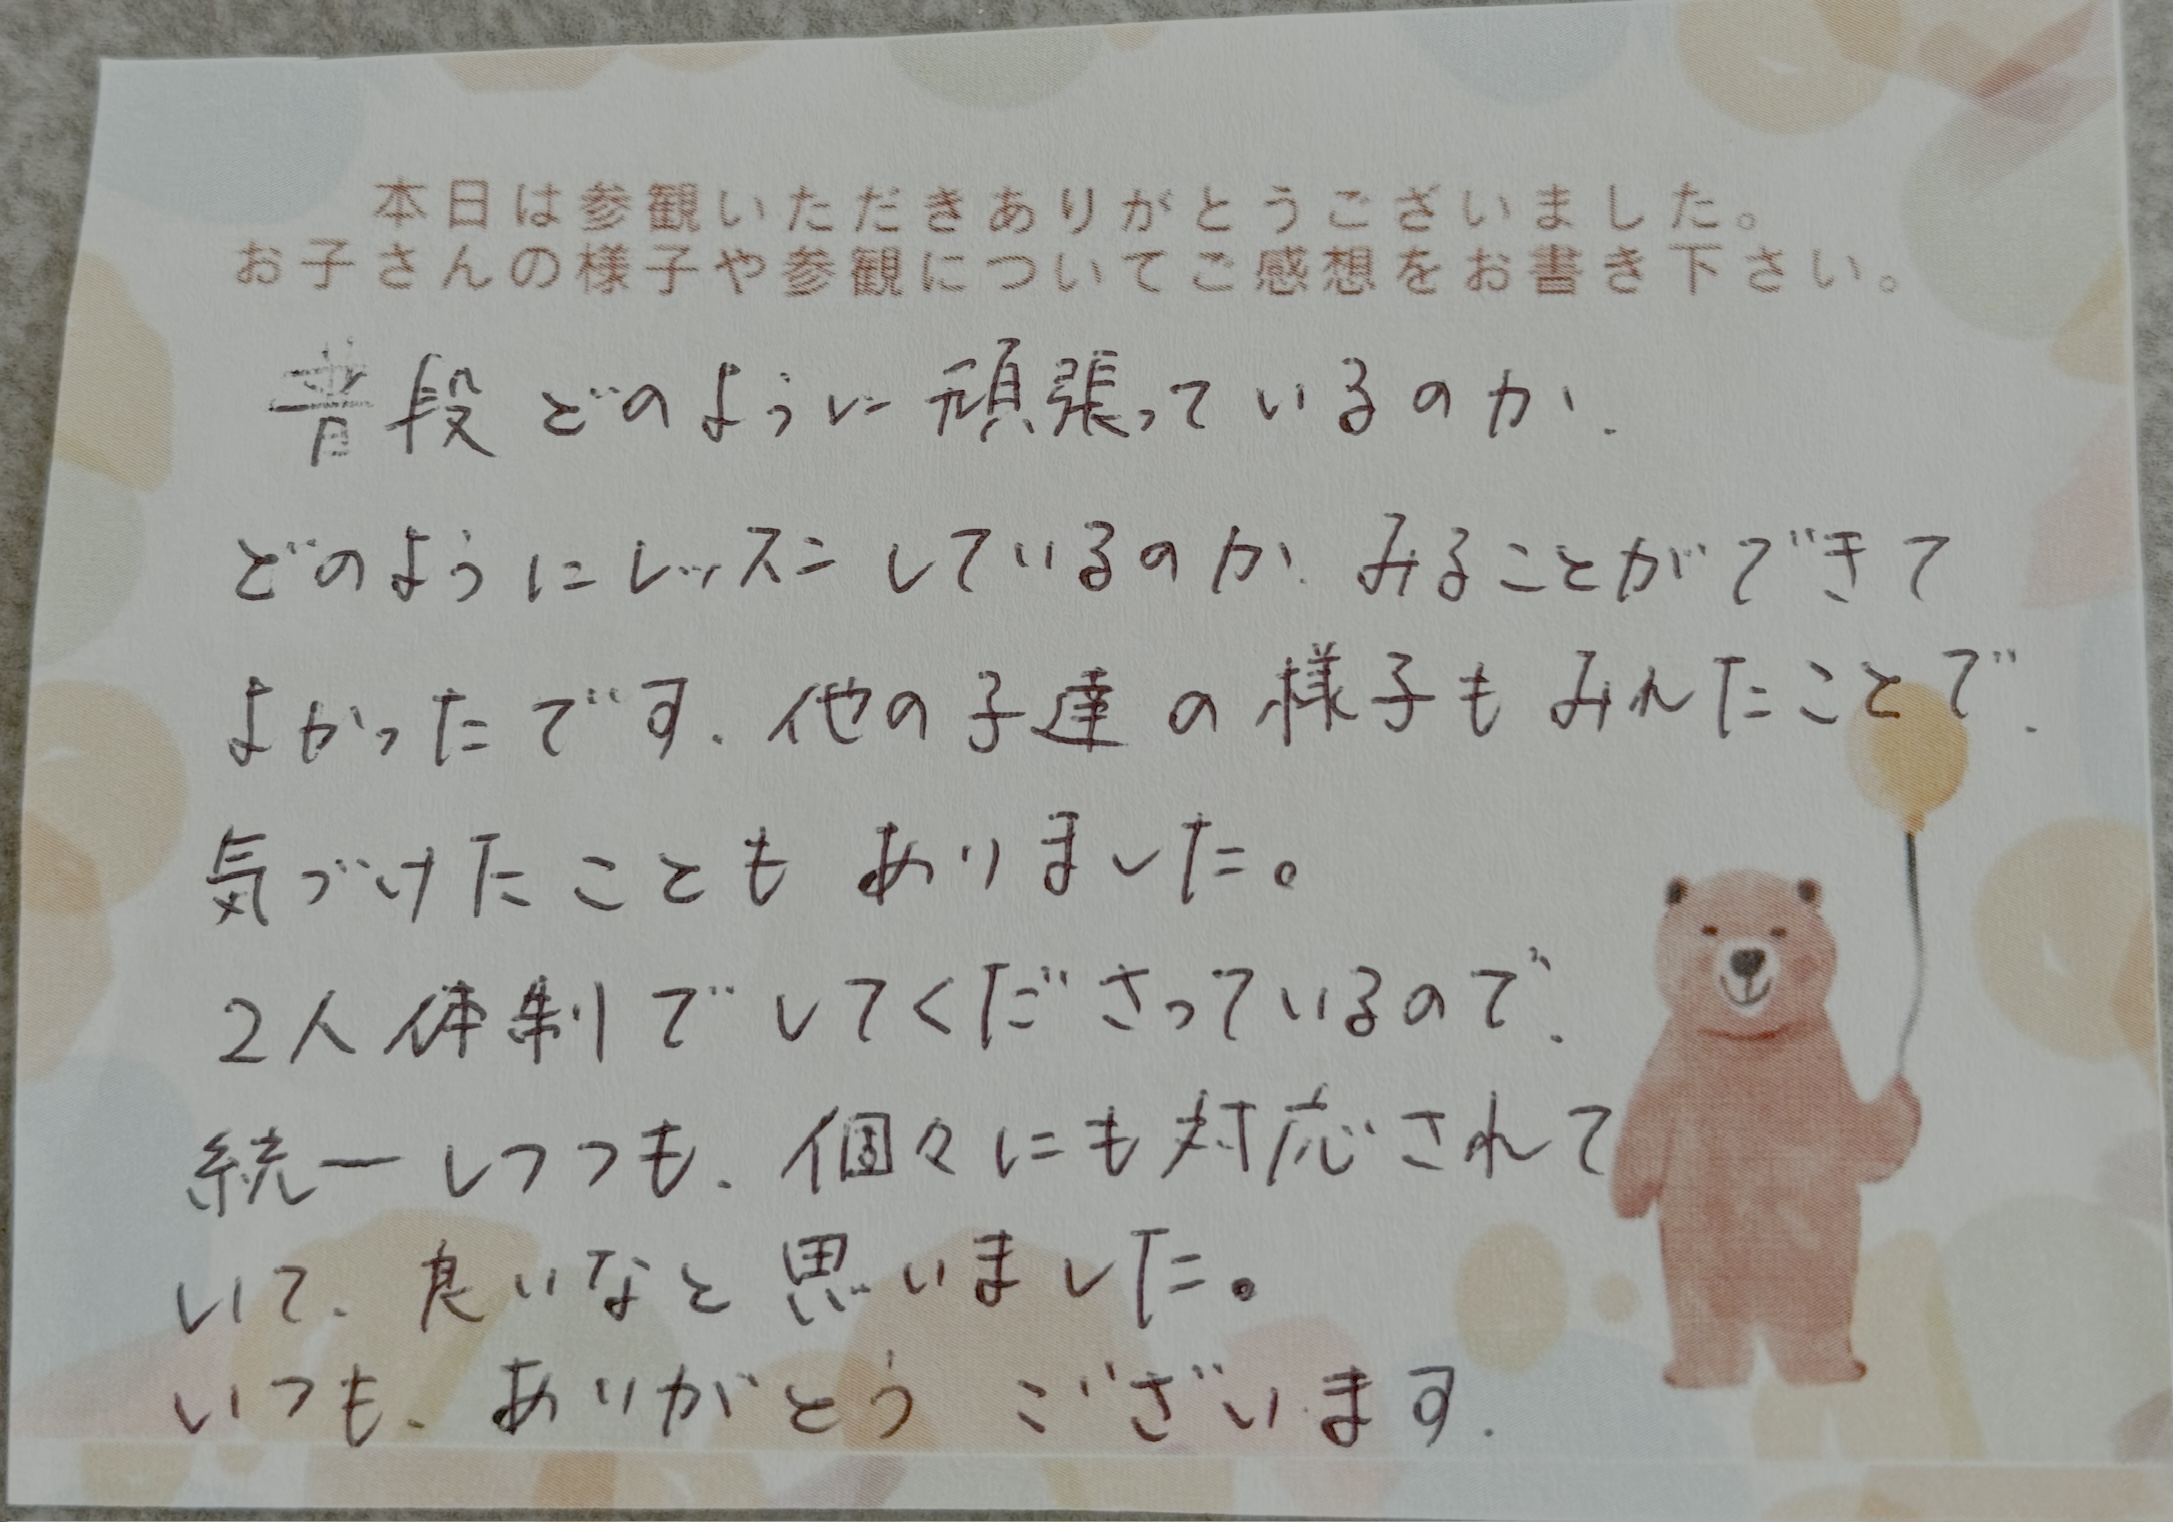 本日は参観いただきありがとうございました。
お子さんの様子や参観についてご感想をお書き下さい。
普段どのように頑張っているのか、
どのようにレッスンしているのか、みることができて
よかったです。他の子達の様子もみれたことで、
気づけたこともありました。
2人体制でしてくださっているので、
統一しつつも、個々にも対応されて
いて、良いなと思いました。
いつも、ありがとうございます。